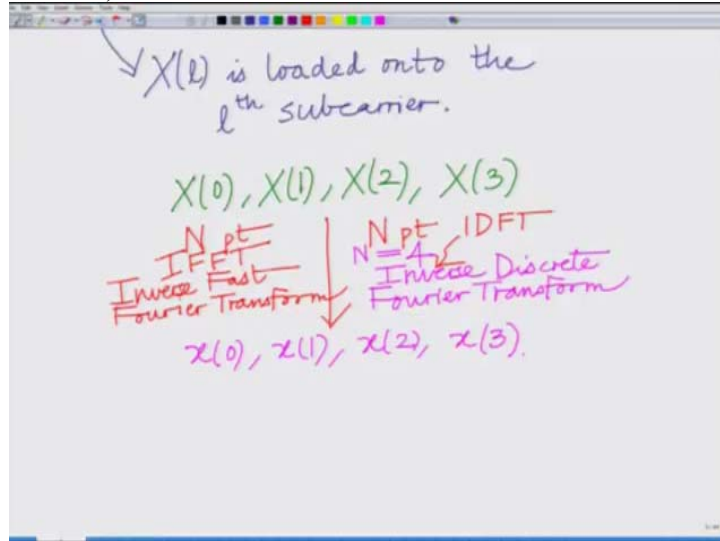 X(l) is loaded onto the
lth subcarrier.
X(0), X(1), X(2), X(3)
N pt
IFFT
Inverse Fast
Fourier Transform
N pt IDFT
N = 4
Inverse Discrete
Fourier Transform
x(0), x(1), x(2), x(3).